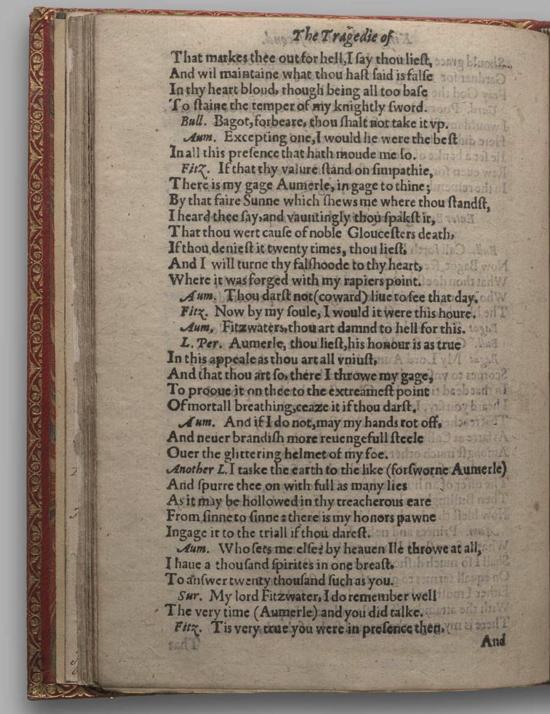 The Tragedie of
That markes thee out for hell, I say thou liest,
And wil maintaine what thou hast said is false
In thy heart bloud, though being all too base
To staine the temper of my knightly sword.
Bull. Bagot, forbeare, thou shalt not take it vp.
Aum. Excepting one, I would he were the best
In all this presence that hath moude me so.
Fitz. If that thy valure stand on simpathie,
There is my gage Aumerle, in gage to thine;
By that faire Sunne which shews me where thou standst,
I heard thee say, and vauntingly thou spakst it,
That thou wert cause of noble Gloucesters death,
If thou deniest it twenty times, thou liest,
And I will turne thy falshoode to thy heart,
Where it was forged with my rapiers point.
Aum. Thou darst not (coward) liue to see that day.
Fitz. Now by my soule, I would it were this houre.
Aum. Fitzwaters, thou art damnd to hell for this.
L. Per. Aumerle, thou liest, his honour is as true
In this appeale as thou art all vniust,
And that thou art so, there I throwe my gage,
To prooue it on thee to the extreamest point
Of mortall breathing, ceaze it if thou darst.
Aum. And if I do not, may my hands rot off,
And neuer brandish more reuengefull steele
Ouer the glittering helmet of my foe.
Another L. I taske the earth to the like (forsworne Aumerle)
And spurre thee on with full as many lies
As it may be hollowed in thy treacherous eare
From sinne to sinne: there is my honors pawne
Ingage it to the triall if thou darest.
Aum. Who sets me else? by heauen Ile throwe at all,
I haue a thousand spirites in one breast,
To answer twenty thousand such as you.
Sur. My lord Fitzwater, I do remember well
The very time (Aumerle) and you did talke.
Fitz. Tis very true you were in presence then,
And